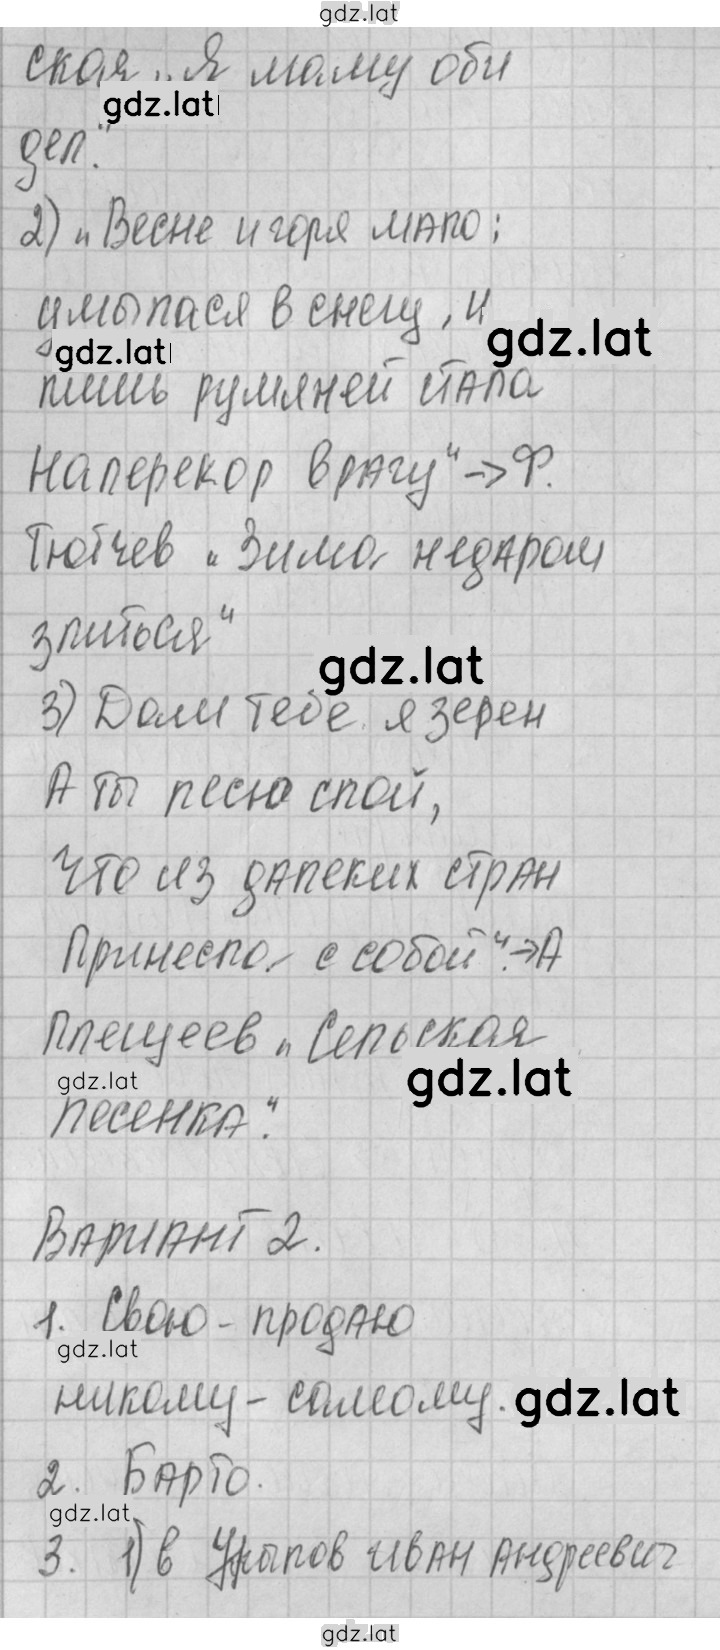 gdz.lat
ская „Я маму оби
gdz.lat
дел“.
2) „Весне и горя мало:
умылася в снегу, и
gdz.lat
gdz.lat
лишь румяней стала
Наперекор врагу“ → Ф.
Тютчев „Зима недаром
злиться“
gdz.lat
3) Дам тебе я зерен
А ты песню спой,
Что из далеких стран
Принесла с собой“. → А
Плещеев „Сельская
gdz.lat
gdz.lat
песенка“.
Вариант 2.
1. Свою - продаю
gdz.lat
никому - самому.
gdz.lat
2. Барто.
gdz.lat
3. 1) в Крылов Иван Андреевич
gdz.lat